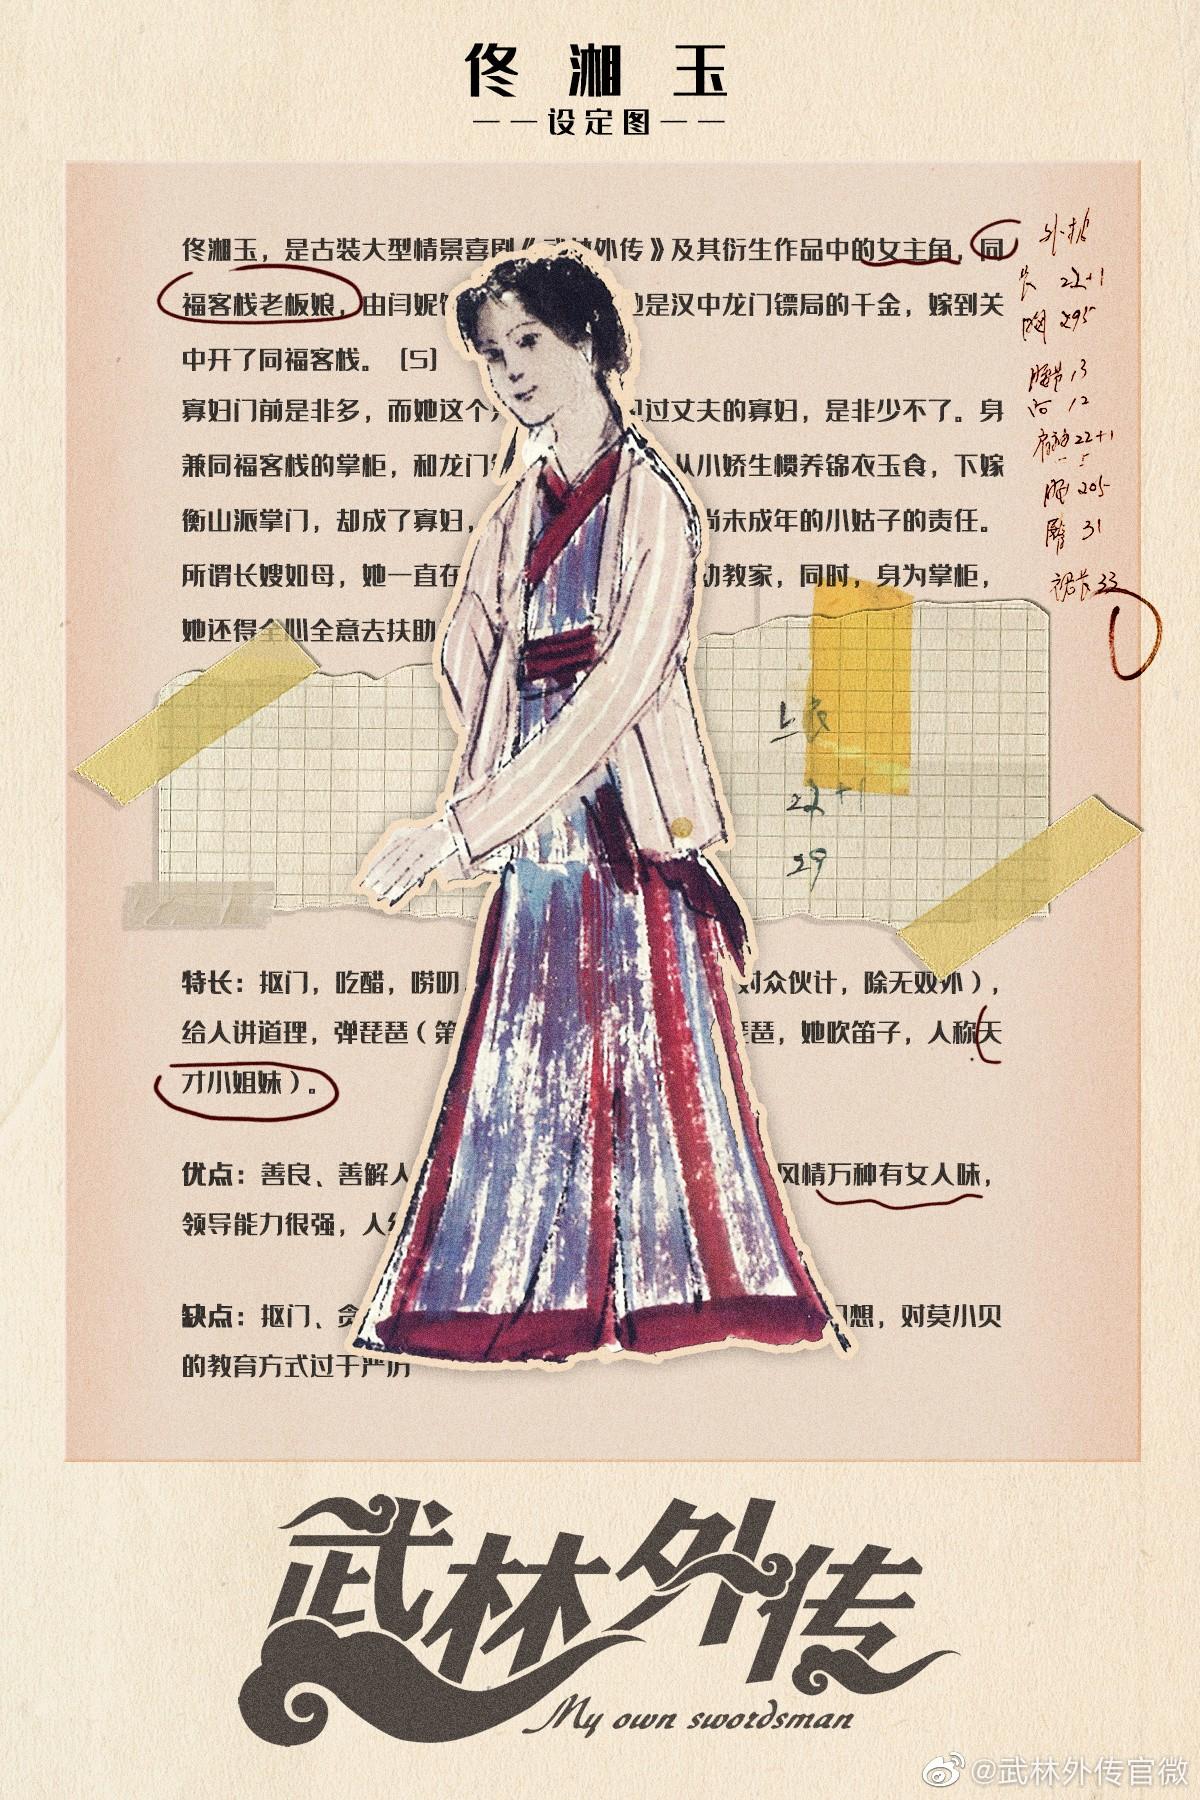 佟湘玉
——设定图——
佟湘玉，是古装大型情景喜剧《武林外传》及其衍生作品中的女主角，同
福客栈老板娘，由闫妮 是汉中龙门镖局的千金，嫁到关
中开了同福客栈。〔5〕
寡妇门前是非多，而她这个 过丈夫的寡妇，是非少不了。身
兼同福客栈的掌柜，和龙门 从小娇生惯养锦衣玉食，下嫁
衡山派掌门，却成了寡妇， 尚未成年的小姑子的责任。
所谓长嫂如母，她一直在 教家，同时，身为掌柜，
她还得全心全意去扶助
长 22+1
胸 295
腰节 13
12
22+1
腰 205
臀 31
裙长 33
上衣
22+1
29
特长：抠门，吃醋，唠叨 对众伙计，除无双外），
给人讲道理，弹琵琶（第 琶，她吹笛子，人称天
才小姐妹）。
优点：善良、善解人 风情万种有女人味，
领导能力很强，人
缺点：抠门、贪 幻想，对莫小贝
的教育方式过于严厉
武林外传
My own swordsman
@武林外传官微